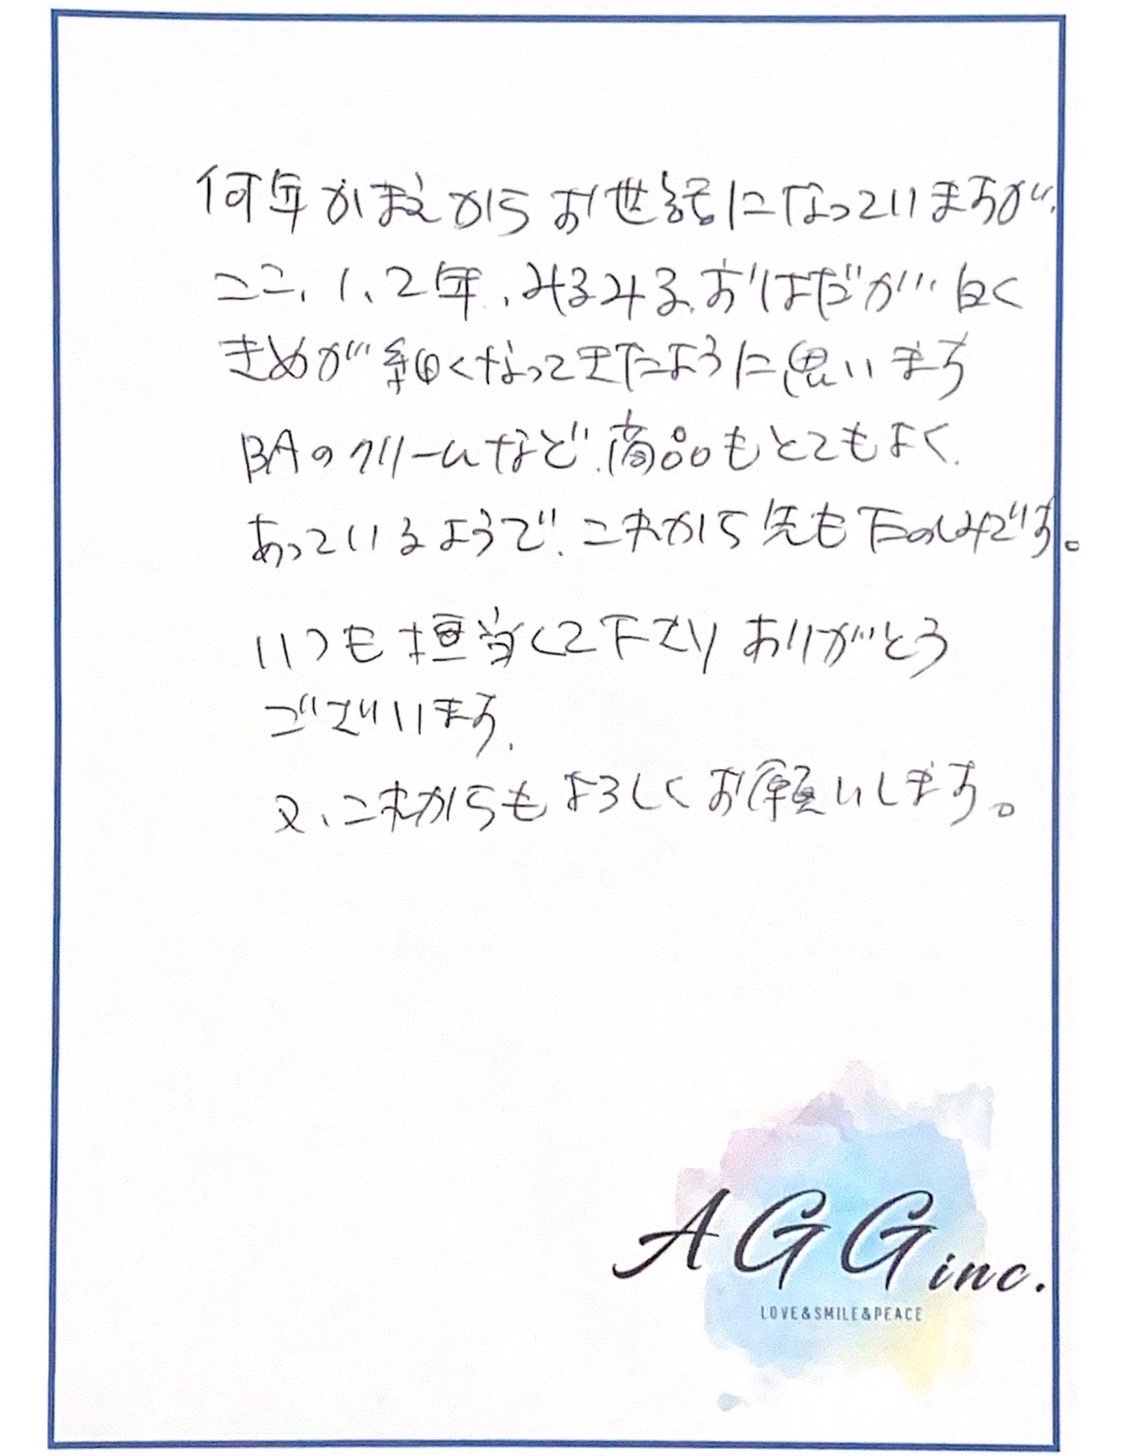 何年かまえからお世話になっていますが、
ここ、1、2年、みるみるおはだが白く
きめが細くなってきたように思います
BAのクリームなど、商品もとてもよく
あっているようで、これから先もたのしみです。
いつも担当して下さりありがとう
ございます。
又、これからもよろしくお願いします。
AGG inc.
LOVE&SMILE&PEACE